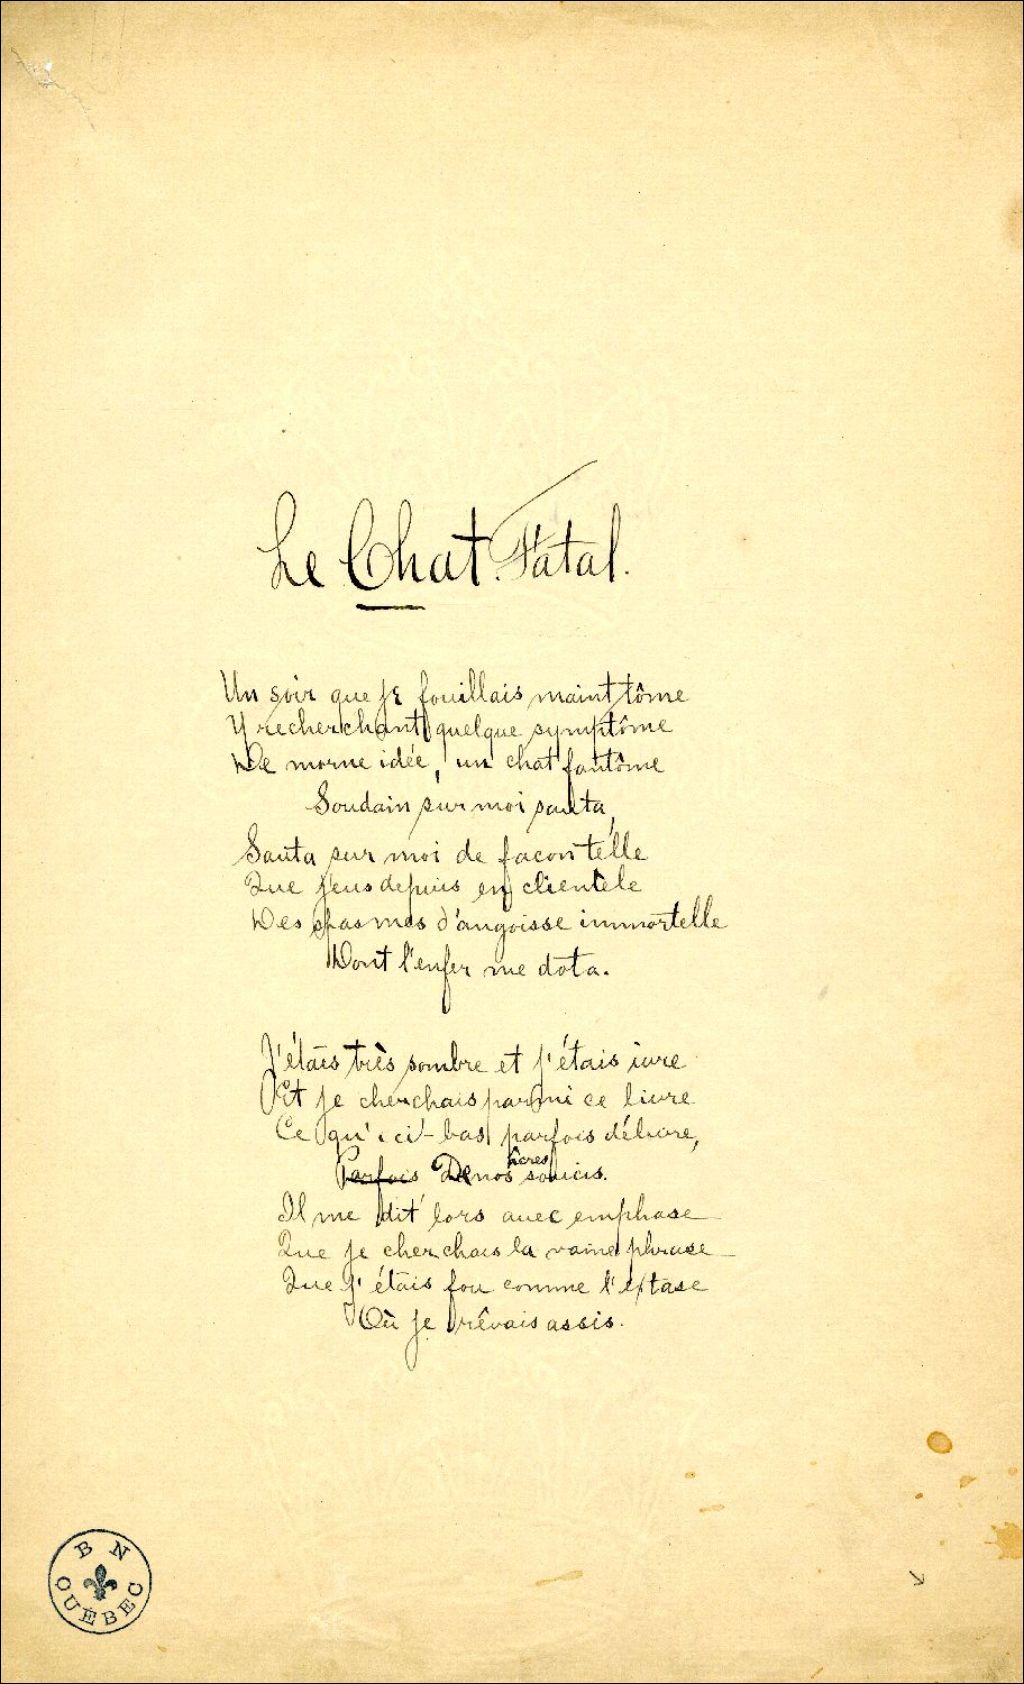 Le Chat Fatal.
Un soir que je fouillais maint tôme
Y recherchant quelque symptôme
De morne idée, un chat fantôme
Soudain sur moi sauta,
Sauta sur moi de facon telle
Que j'eus depuis en clientèle
Des spasmes d'angoisse immortelle
Dont l'enfer me dota.
J'étais très sombre et j'étais ivre
Et je cherchais parmi ce livre
Ce qu'ici-bas parfois délivre,
âcres
Parfois De nos soucis.
Il me dit lors avec emphase
Que je cherchais la vaine phrase
Que j'étais fou comme l'extase
Où je rêvais assis.
B N
QUÉBEC